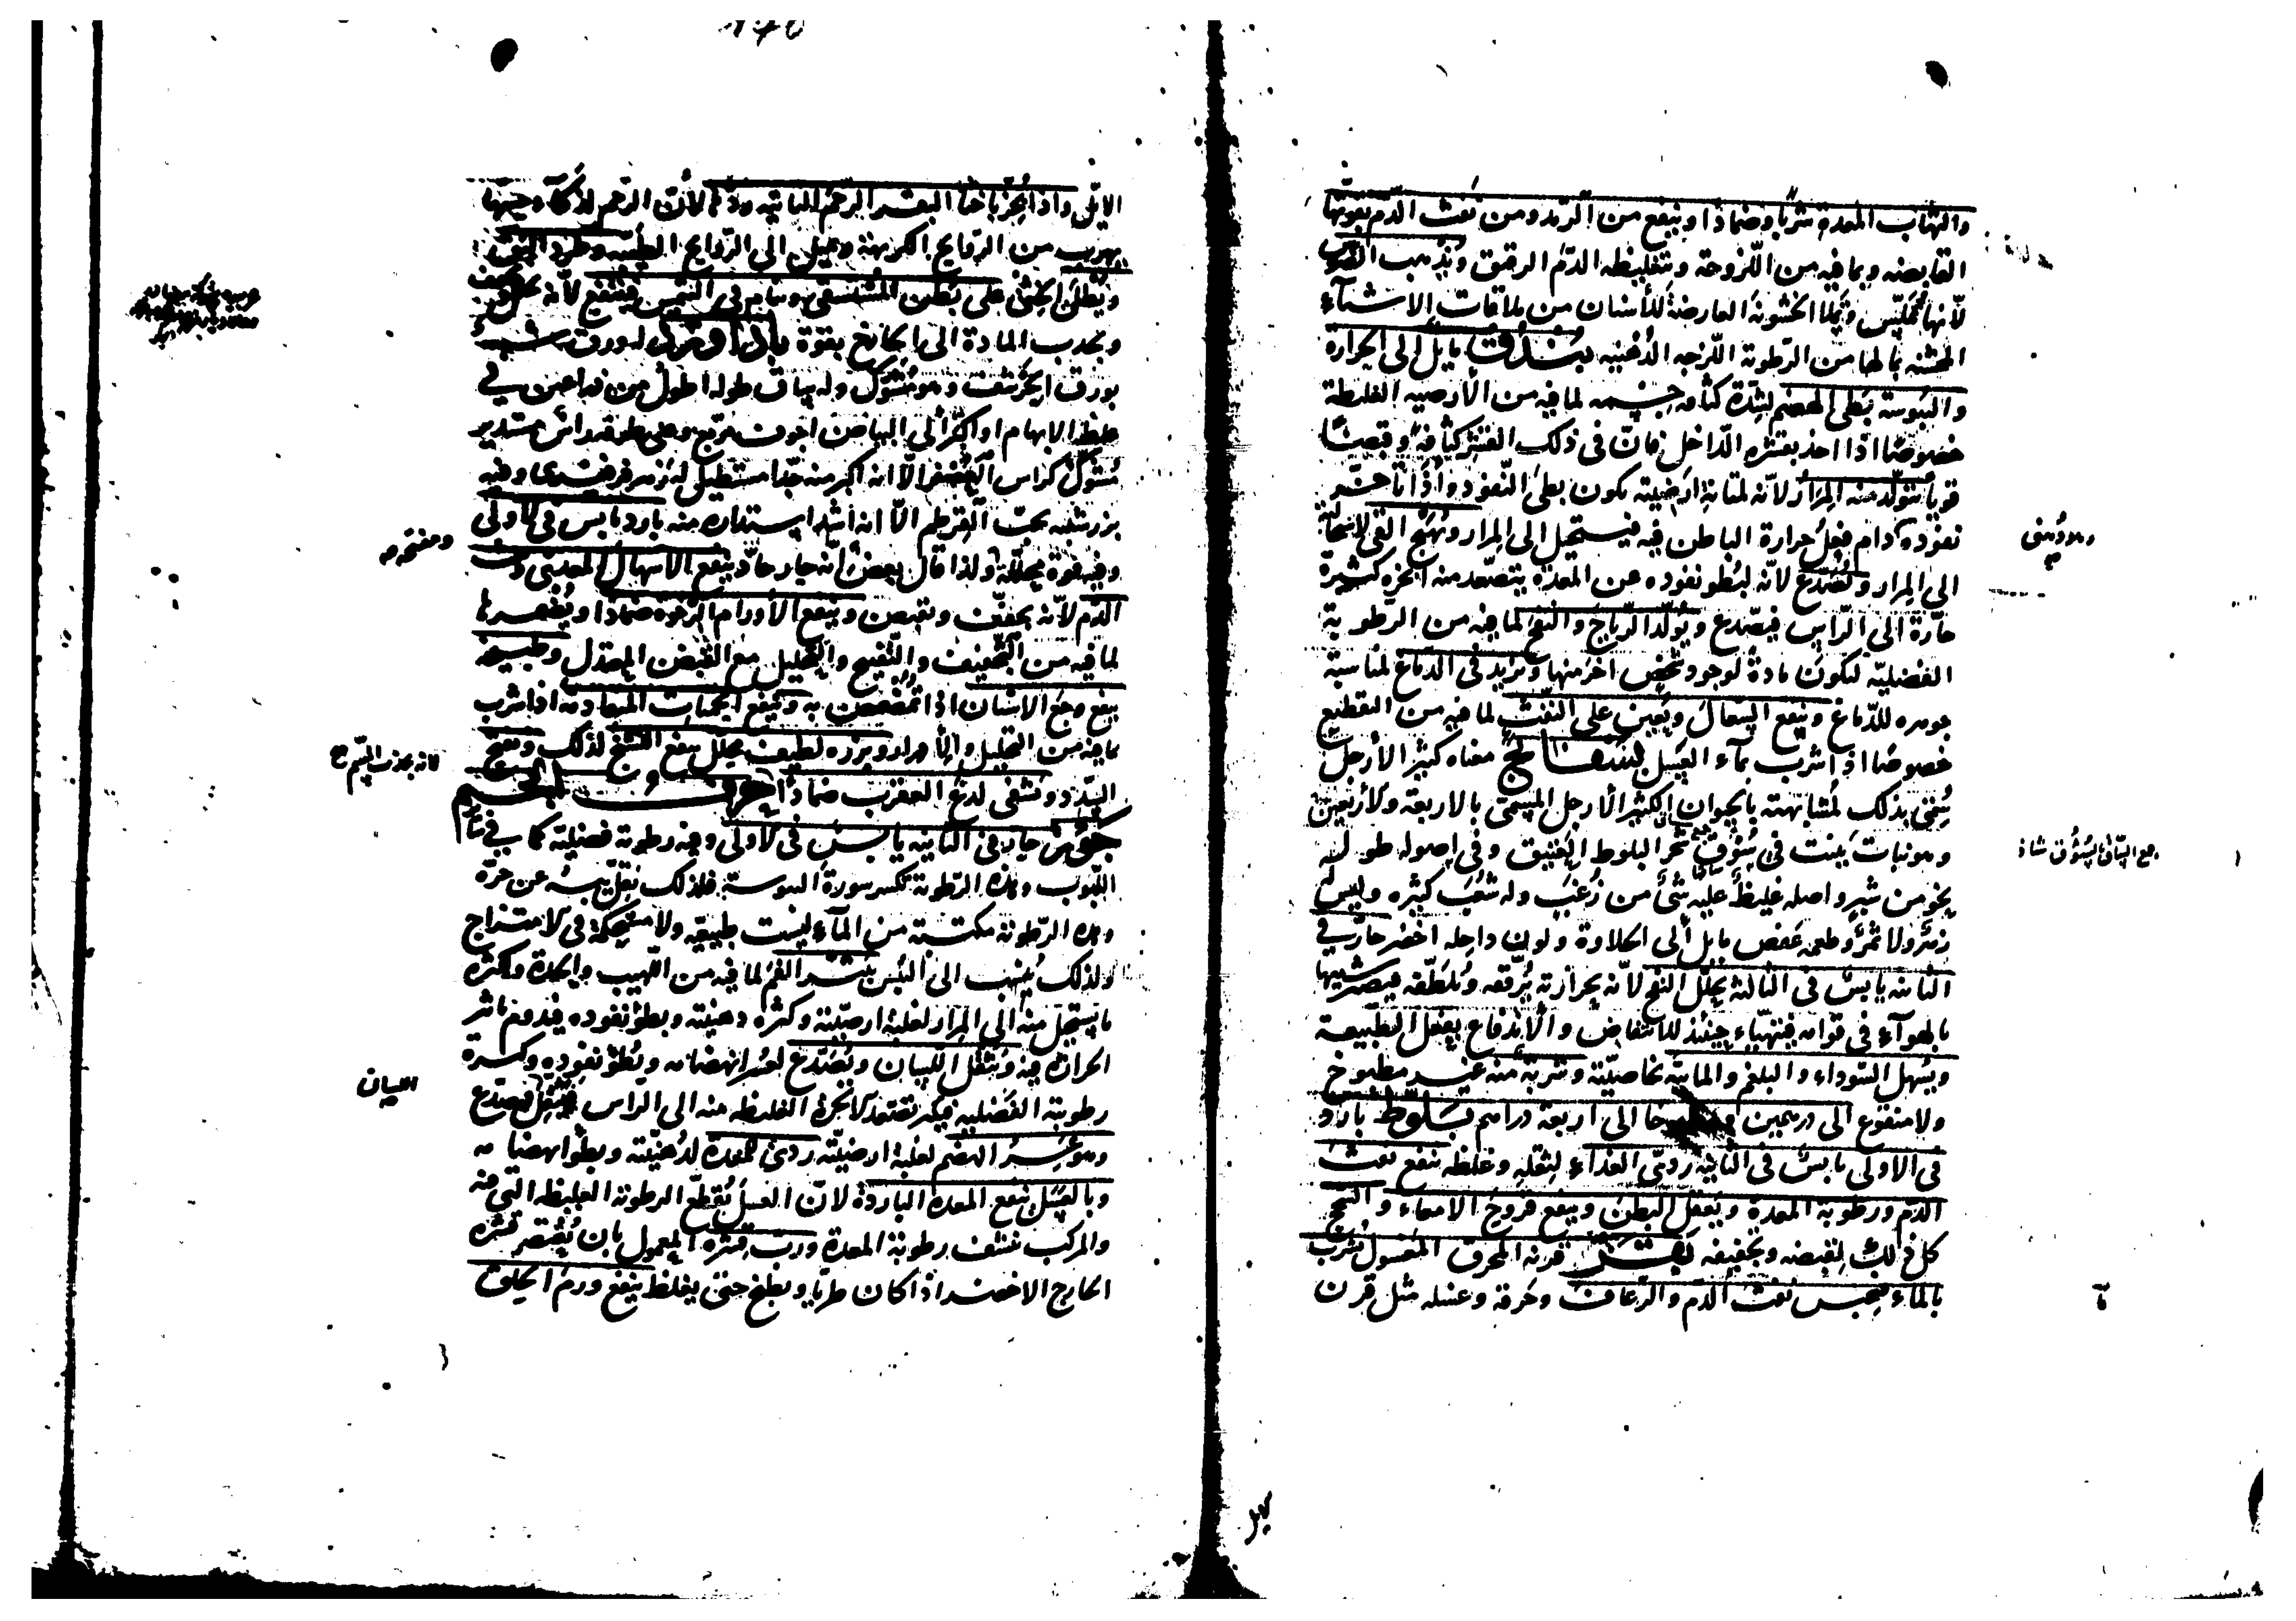 والتهاب المعدة شربا وضمادا وينفع من الرمد ومن نفث الدم بقوتها
القابضه وبما فيه من اللزوجة وبتغليظه الدم الرقيق ويذهب الضرس
لأنها تملّس وتملأ الخشونة العارضة للأسنان من ملاقات الاشياء
الخشنه بما لها من الرطوبة اللزجه الدهنيه بندق مايل الى الحرارة
واليبوسة بطئ الهضم لشدة كثافة جسمه لما فيه من الأرضيه الغليظة
خصوصا اذا اخذ بقشره الداخل فان فى ذلك القشر كثافة وقبضا
قويا يتولد منه المرار لأنه لمتانة ارضيته يكون بطئ النفوذ واذا تأخر
نفوذه دام فعل حرارة الباطن فيه فيستحيل الى المرار ويهيج القئ لاستحالته
الى المرار ويصدع لأنه لبطؤ نفوذه عن المعدة يتصعد منه ابخرة كثيرة
حارة الى الراس فيصدع ويولد الرياح والنفخ لما فيه من الرطوبة
الفضلية لتكون مادة لوجود شخص اخر منها ويزيد فى الدماغ لمناسبة
جوهره للدماغ وينفع السعال ويعين على النفث لما فيه من التقطيع
خصوصا اذا شرب بماء العسل بسفايج معناه كثير الأرجل
سمى بذلك لمشابهته بالحيوان الكثير الأرجل المسمى بالاربعة والأربعين
وهو نبات ينبت فى سوق شجر البلوط العتيق وفى اصوله طوله
نحو من شبر واصله غليظ عليه شئ من زغب وله شعب كثيره وليس له
زهر ولا ثمر وطعمه عفص مايل الى الحلاوة ولون داخله اخضر حار فى
الثانيه يابس فى الثالثه يحلل النفخ لأنه بحرارته يرققه ويلطفه فيصير شبيها
بالهواء فى قوامه فيتهياء حينئذ للانتفاض والاندفاع بفعل الطبيعة
ويسهل السوداء والبلغم والمائية بخاصيته وشربة منه غير مطبوخ
ولا منقوع الى درهمين الى اربعة دراهم بلوط بارد
فى الاولى يابس فى الثانيه ردئ الغذاء لثقله وغلظه ينفع نفث
الدم ورطوبة المعدة ويعقل البطن وينفع قروح الامعاء والسحج
كل ذلك لقبضه وتجفيفه قرنه المحرق المغسول يشرب
بالماء فيحبس نفث الدم والرعاف وحرقه وغسله مثل قرن
الايل واذا بخر باخثا البقر الرحم الناتيه ردها لأن الرحم لذكاء حسها
يهرب من الروايح الكريهة ويميل الى الروايح الطيبه وطرد البق
ويطلى الخثى على بطن المستسقى وينام فى الشمس فينتفع لأنه يجفف
ويجذب المادة الى الخارج بقوة باداورد له ورق شبيه
بورق الحرشف وهو مشوك وله ساق طوله اطول من ذراعين فى
غلظ الابهام او اكثر الى البياض اجوف مربع وعلى طرفه راس مستدير
مشوك كراس القنفذ الا انه اكبر منه جدا مستطيل له زهر فرفيرى وفيه
بزر شبيه بحب القرطم الا انه اشد استدارة منه بارد يابس فى الاولى
وفيه قوة محللة ولذا قال بعض انه حار حاد ينفع الاسهال المعدى ونفث
الدم لأنه يجفف ويقبض وينفع الأورام الرخوة ضمادا ويضمرها
لما فيه من التجفيف والتفتيح والتحليل مع القبض المعتدل وطبيخه
ينفع وجع الاسنان اذا تمضمض به وينفع الحميات المتقادمه اذا شرب
بما فيه من التحليل والأدرار وبزره لطيف محلل ينفع التشنج لذلك ويفتح
السدد ويشفى لدغ العقرب ضمادا حرف الجيم
جوز حار فى الثانيه يابس فى الاولى وفيه رطوبة فضلية كما فى سائر
اللبوب وهذه الرطوبة تكسر سورة اليبوسة فلذلك يقل يبسه عن حره
وهذه الرطوبة مكتسبة من الماء ليست طبيعية ولا مستحكمة فى الامتزاج
ولذلك ينسب الى اليبس يبثر الفم لما فيه من اللهيب والحدة وكثرة
ما يستحيل منه الى المرار لغلبة ارضيته وكثرة دهنيته وبطؤ نفوذه فيدوم تاثير
الحرارة فيه ويثقل اللسان ويصدع لعسر انهضامه وبطؤ نفوذه وكثرة
رطوبته الفضليه فيكثر تصعد الابخرة الغليظه منه الى الراس فيثقل فيصدع
وهو عسر الهضم لغلبة ارضيته ردئ للمعدة لدهنيته وبطؤ انهضامه
وبالعسل ينفع المعدة الباردة لان العسل يقطع الرطوبة الغليظه التى فيه
والمركب ينشف رطوبة المعدة ورب قشره المعمول بان يعتصر قشره
الخارج الاخضر اذا كان طريا ويطبخ حتى يغلظ ينفع ورم الحلق
اللسان